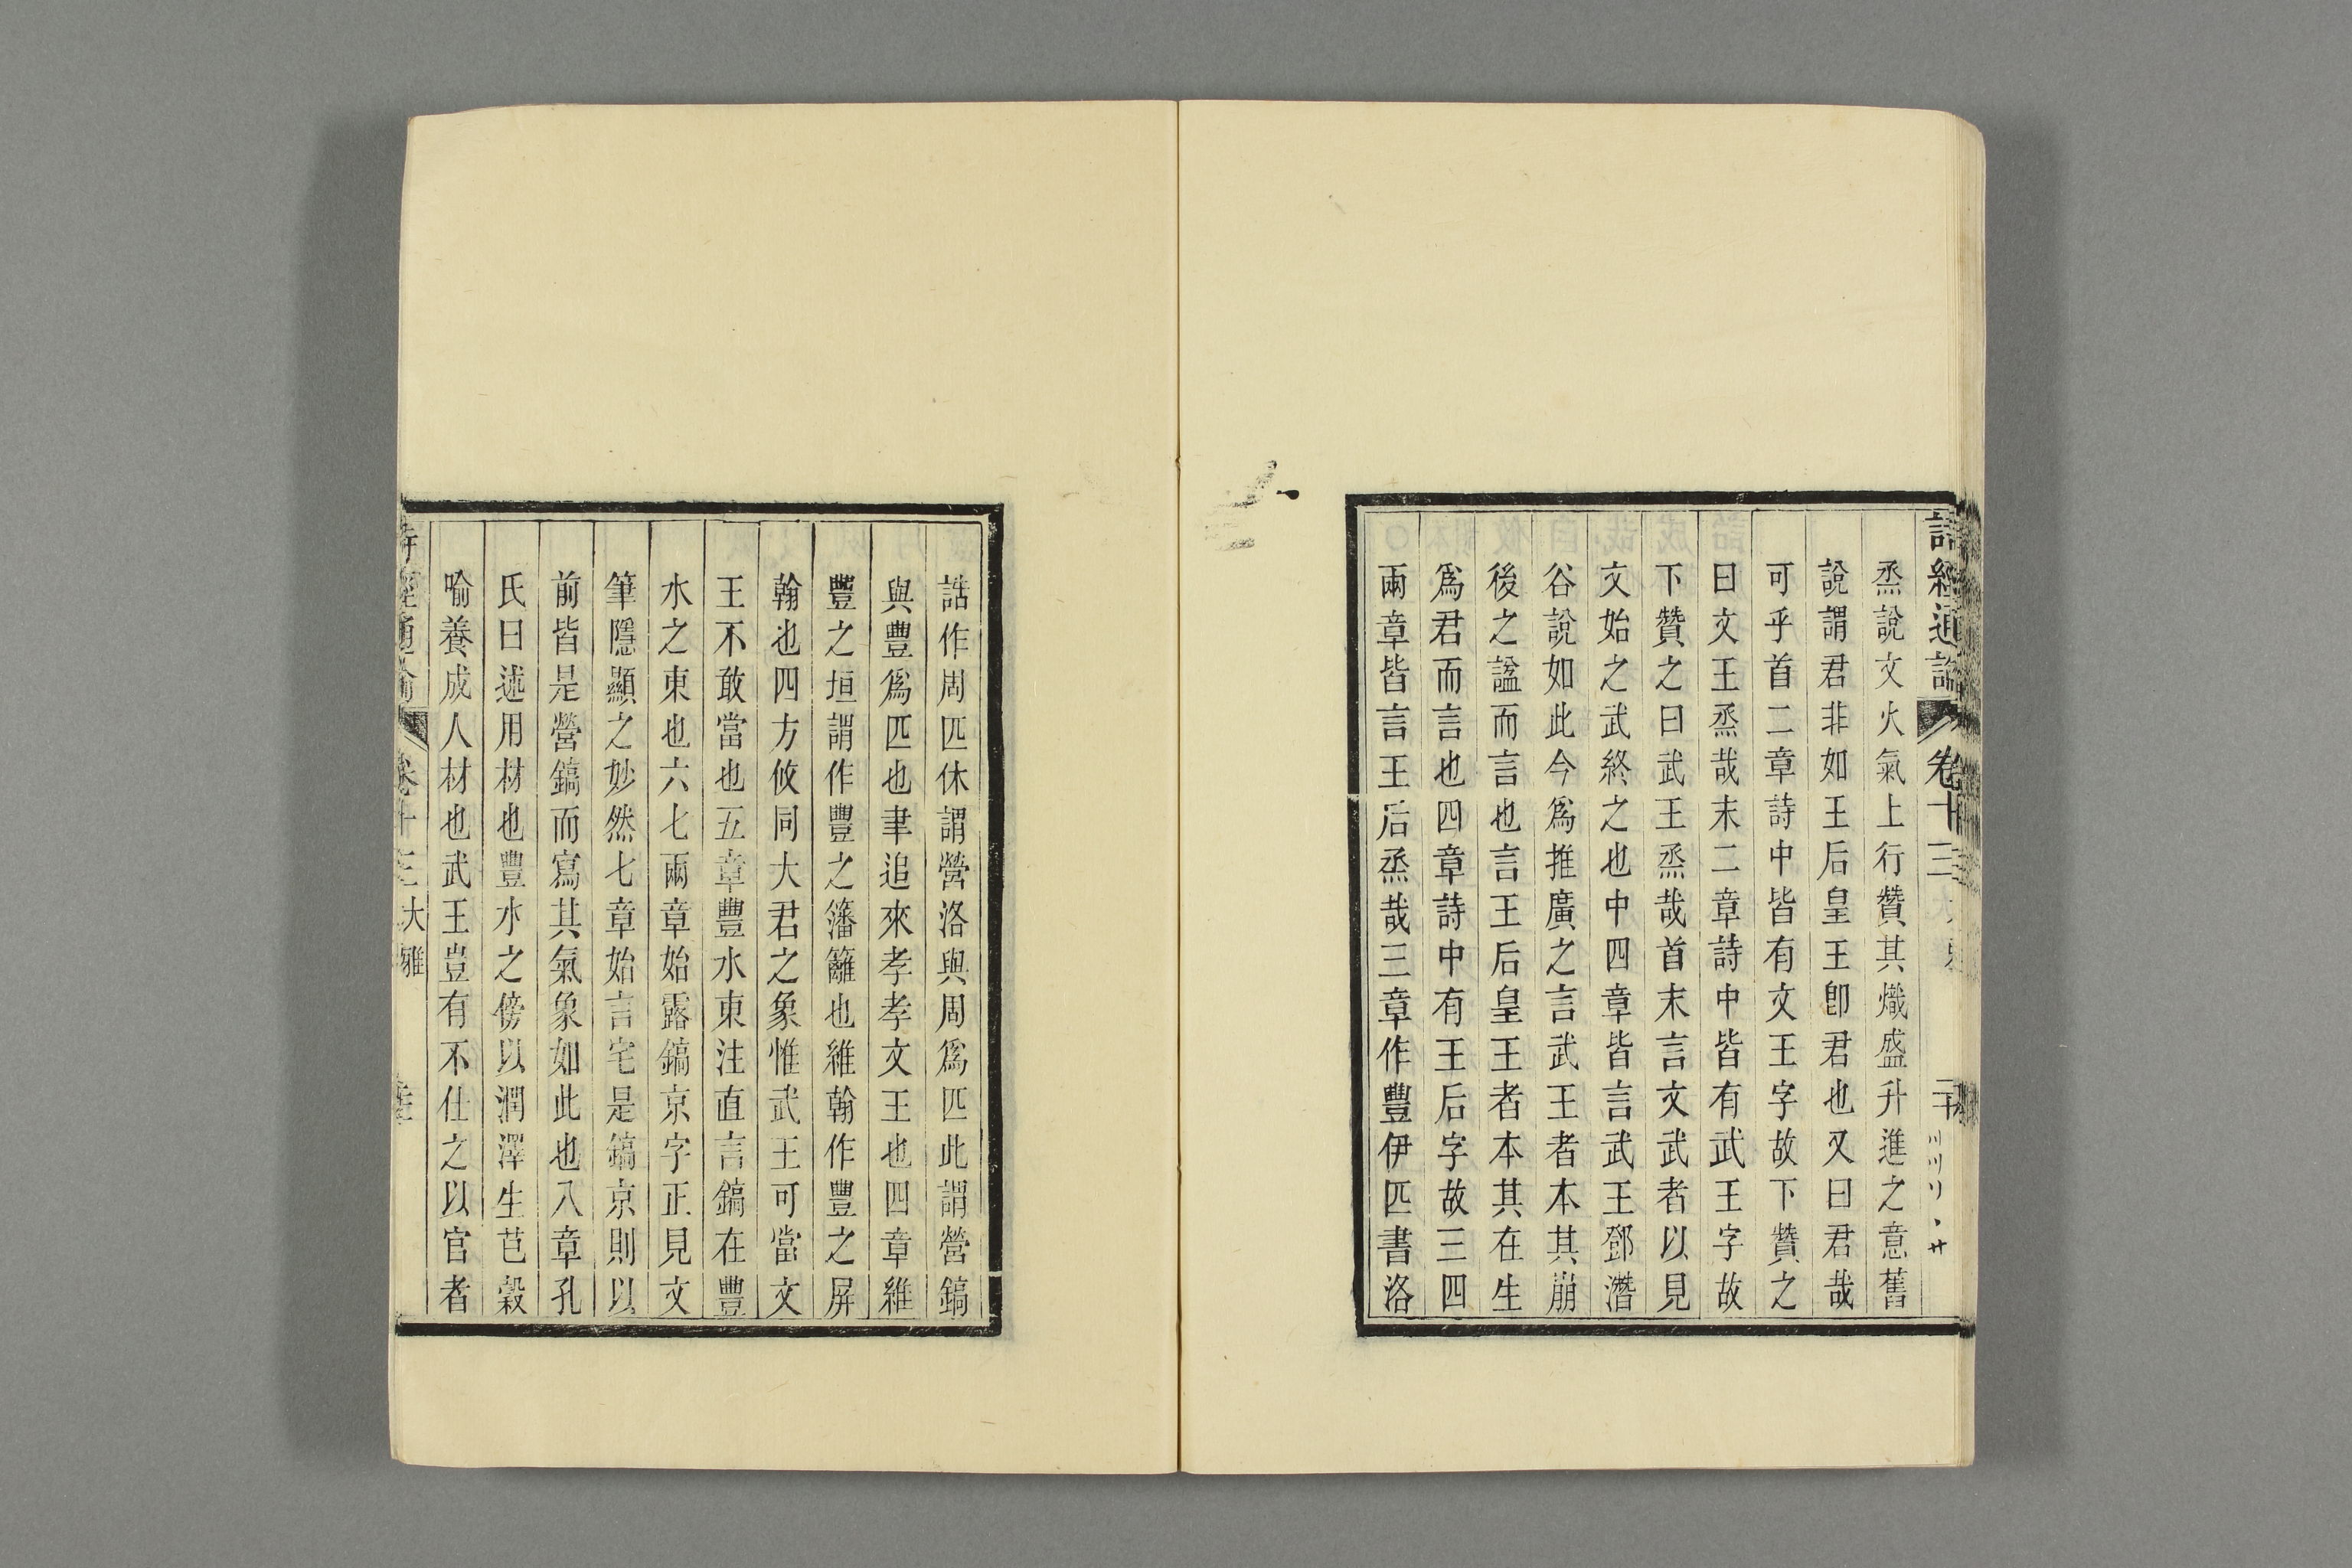 詩經通論 卷十三
烝說文火氣上行贊其熾盛升進之意舊
說謂君非如王后皇王卽君也又曰君哉
可乎首二章詩中皆有文王字故下贊之
曰文王烝哉末二章詩中皆有武王字故
下贊之曰武王烝哉首末言文武者以見
文始之武終之也中四章皆言武王鄧潛
谷說如此今爲推廣之言武王者本其崩
後之諡而言也言王后皇王者本其在生
爲君而言也四章詩中有王后字故三四
兩章皆言王后烝哉三章作豐伊匹書洛
誥作周匹休謂營洛與周爲匹此謂營鎬
與豐爲匹也聿追來孝孝文王也四章維
豐之垣謂作豐之籓籬也維翰作豐之屏
翰也四方攸同大君之象惟武王可當文
王不敢當也五章豐水東注直言鎬在豐
水之東也六七兩章始露鎬京字正見文
筆隱顯之妙然七章始言宅是鎬京則以
前皆是營鎬而寫其氣象如此也八章孔
氏曰述用材也豐水之傍以潤澤生芑穀
喻養成人材也武王豈有不仕之以官者
詩經通論 卷十三 大雅